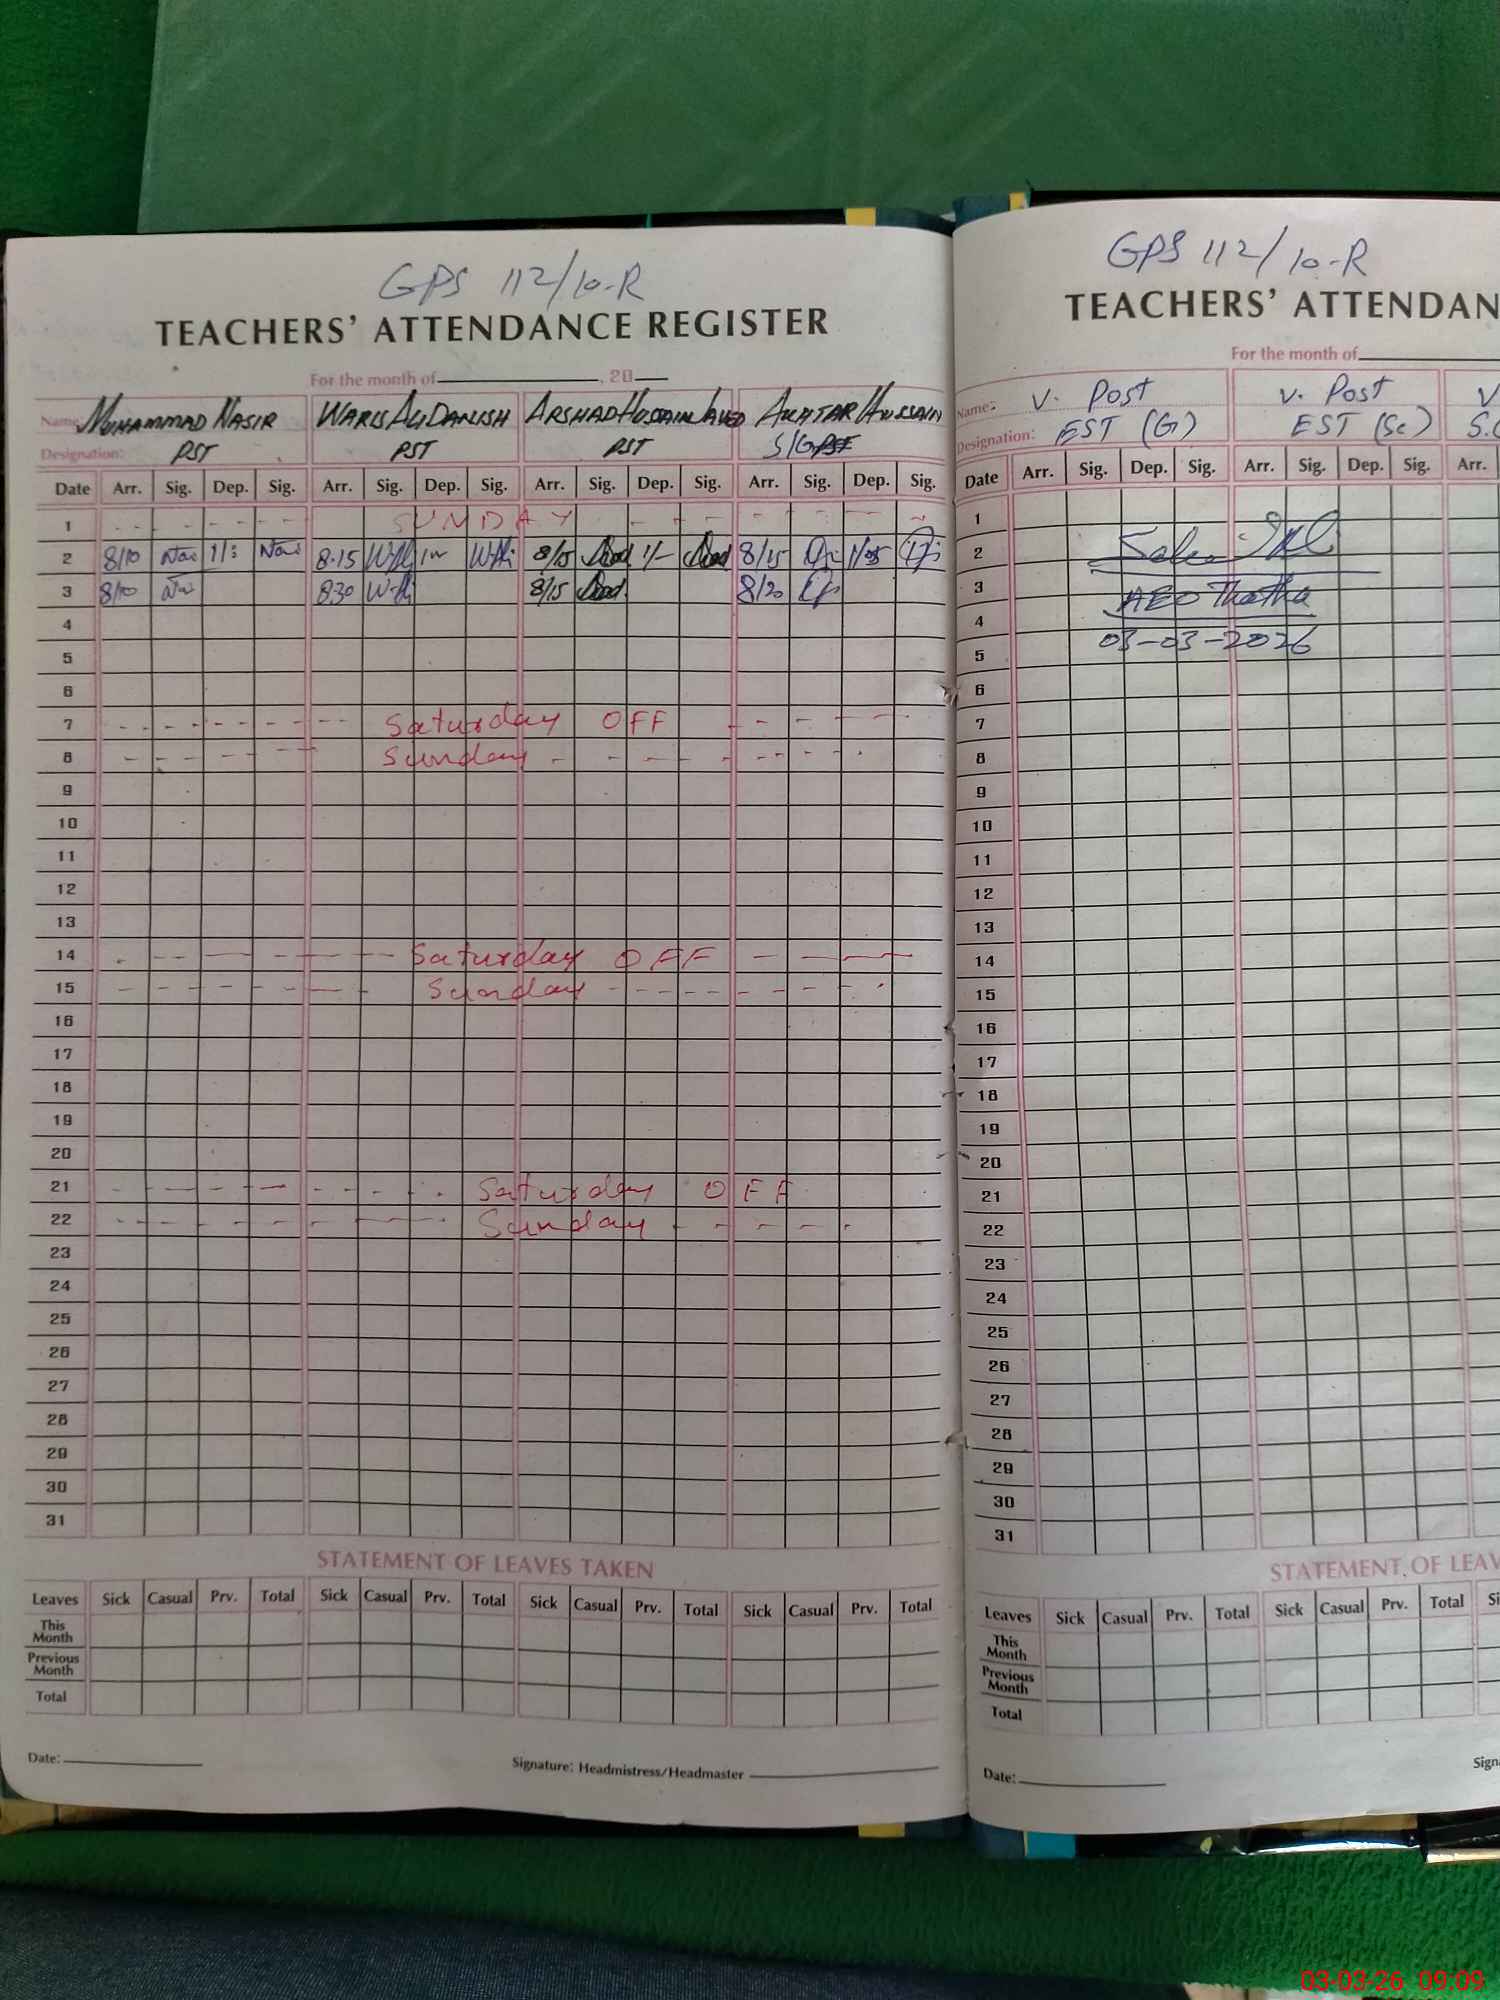 GPS 112/10-R
TEACHERS' ATTENDANCE REGISTER
For the month of , 20
Name: MUHAMMAD NASIR WARIS ALI DANISH ARSHAD HUSSAIN JAVED AKHTAR HUSSAIN
Designation: PST PST PST S/G
Date Arr. Sig. Dep. Sig. Arr. Sig. Dep. Sig. Arr. Sig. Dep. Sig. Arr. Sig. Dep. Sig.
1 SUNDAY
2 8/10 8:15 8/15 1/- 8/15
3 8/10 830 8/15 8/20
4
5
6
7 Saturday OFF
8 Sunday
9
10
11
12
13
14 Saturday OFF
15 Sunday
16
17
18
19
20
21 Saturday OFF
22 Sunday
23
24
25
26
27
28
29
30
31
STATEMENT OF LEAVES TAKEN
Leaves Sick Casual Prv. Total Sick Casual Prv. Total Sick Casual Prv. Total Sick Casual Prv. Total
This Month
Previous Month
Total
Date:
Signature: Headmistress/Headmaster
GPS 112/10-R
TEACHERS' ATTENDAN
For the month of
Name: V. Post V. Post V
Designation: EST (G) EST (Sc) S.
Date Arr. Sig. Dep. Sig. Arr. Sig. Dep. Sig. Arr.
1
2
3 AEO Thatha
4
5 03-03-2026
6
7
8
9
10
11
12
13
14
15
16
17
18
19
20
21
22
23
24
25
26
27
28
29
30
31
STATEMENT OF LEAV
Leaves Sick Casual Prv. Total Sick Casual Prv. Total Si
This Month
Previous Month
Total
Date:
Sign
03-03-26 09:09